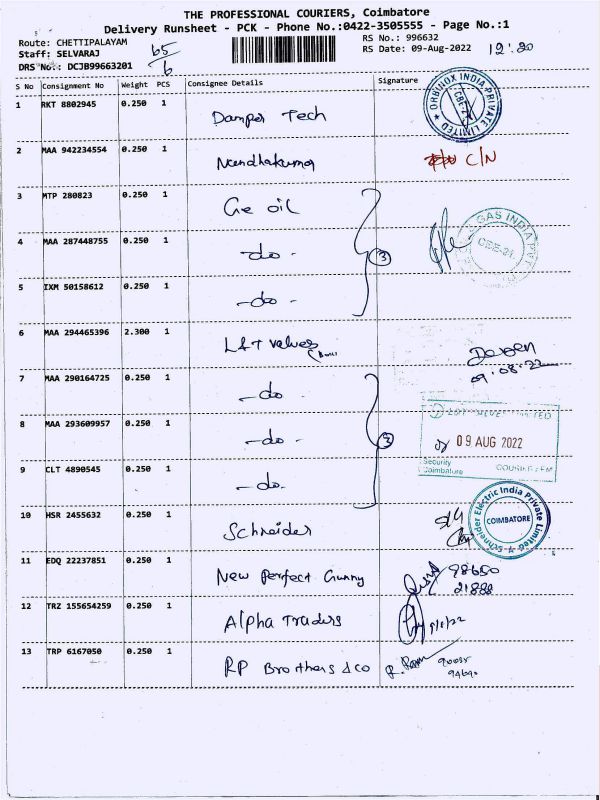 THE PROFESSIONAL COURIERS, Coimbatore
Delivery Runsheet - PCK - Phone No.:0422-3505555 - Page No.:1
Route: CHETTIPALAYAM
Staff: SELVARAJ
DRS No.: DCJB99663201
RS No.: 996632
RS Date: 09-Aug-2022 12:20
S No Consignment No Weight PCS Consignee Details Signature
1 RKT 8802945 0.250 1 Damper Tech
ORBINOX INDIA PRIVATE LIMITED
2 MAA 942234554 0.250 1 Nandhakumar C/N
3 MTP 280823 0.250 1 Ge oil
4 MAA 287448755 0.250 1 -do-
3
GAS INDIA PVT
CBE-21
5 IXM 50158612 0.250 1 -do-
6 MAA 294465396 2.300 1 L&T valves
09.08.22
7 MAA 290164725 0.250 1 -do
8 MAA 293609957 0.250 1 -do-
3
09 AUG 2022
Security
Coimbatore
9 CLT 4890545 0.250 1 -do-
10 HSR 2455632 0.250 1 Schneider
Schneider Electric India Private Limited
COIMBATORE
11 EDQ 22237851 0.250 1 New Perfect Gunny
98650
21888
12 TRZ 155654259 0.250 1 Alpha Traders
9/8/22
13 TRP 6167050 0.250 1 RP Brothers & co